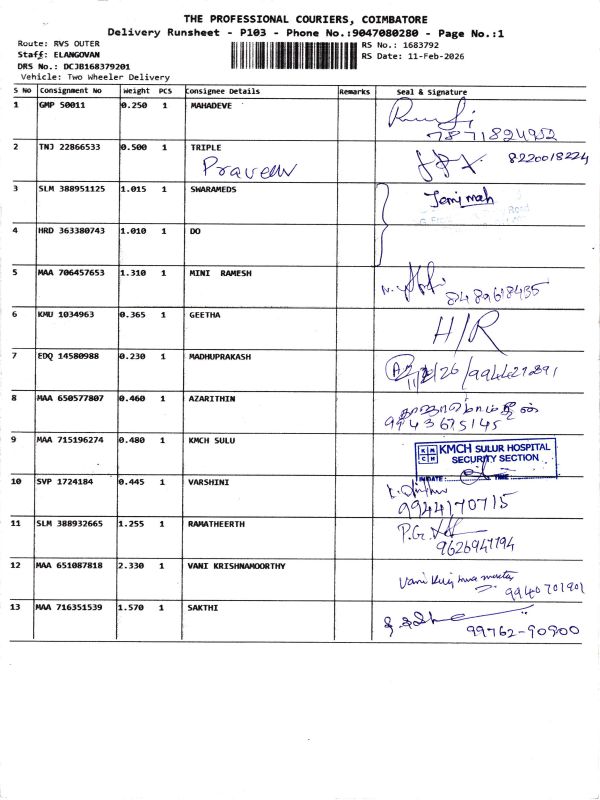 THE PROFESSIONAL COURIERS, COIMBATORE
Delivery Runsheet - P103 - Phone No.:9047080280 - Page No.:1
Route: RVS OUTER
Staff: ELANGOVAN
DRS No.: DCJB168379201
Vehicle: Two Wheeler Delivery
RS No.: 1683792
RS Date: 11-Feb-2026
S No Consignment No Weight PCS Consignee Details Remarks Seal & Signature
1 GMP 50011 0.250 1 MAHADEVE
7871824952
2 TNJ 22866533 0.500 1 TRIPLE
Praveen 8220018224
3 SLM 388951125 1.015 1 SWARAMEDS Jemimah
4 HRD 363380743 1.010 1 DO
5 MAA 706457653 1.310 1 MINI RAMESH
8489618435
6 KMU 1034963 0.365 1 GEETHA H/R
7 EDQ 14580988 0.230 1 MADHUPRAKASH
8 MAA 650577807 0.460 1 AZARITHIN
9443675145
9 MAA 715196274 0.480 1 KMCH SULU KMCH SULUR HOSPITAL
SECURITY SECTION
IN DATE: TIME:
10 SVP 1724184 0.445 1 VARSHINI
9944170715
11 SLM 388932665 1.255 1 RAMATHEERTH P.G.
9626947794
12 MAA 651087818 2.330 1 VANI KRISHNAMOORTHY
9940701901
13 MAA 716351539 1.570 1 SAKTHI
99762-90900